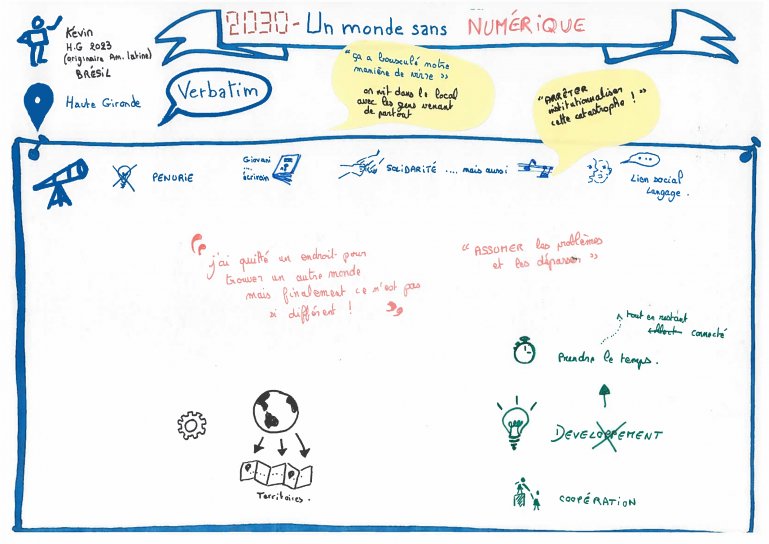 2030 - Un monde sans NUMÉRIQUE
Kévin
H.G 2023
(originaire Am. latine)
BRÉSIL
Haute Gironde
Verbatim
"ça a bousculé notre
manière de vivre"
on vit dans le local
avec les gens venant
de partout
"ARRÊTER
institutionnaliser
cette catastrophe !"
PENURIE
Giovani
écrivain
SOLIDARITÉ .... mais aussi
Lien social
langage.
"j'ai quitté un endroit pour
trouver un autre monde
mais finalement ce n'est pas
si différent !"
"ASSUMER les problèmes
et les dépasser"
tout en restant
collect connecté
Prendre le temps.
DEVELOPPEMENT
COOPÉRATION
Territoires.